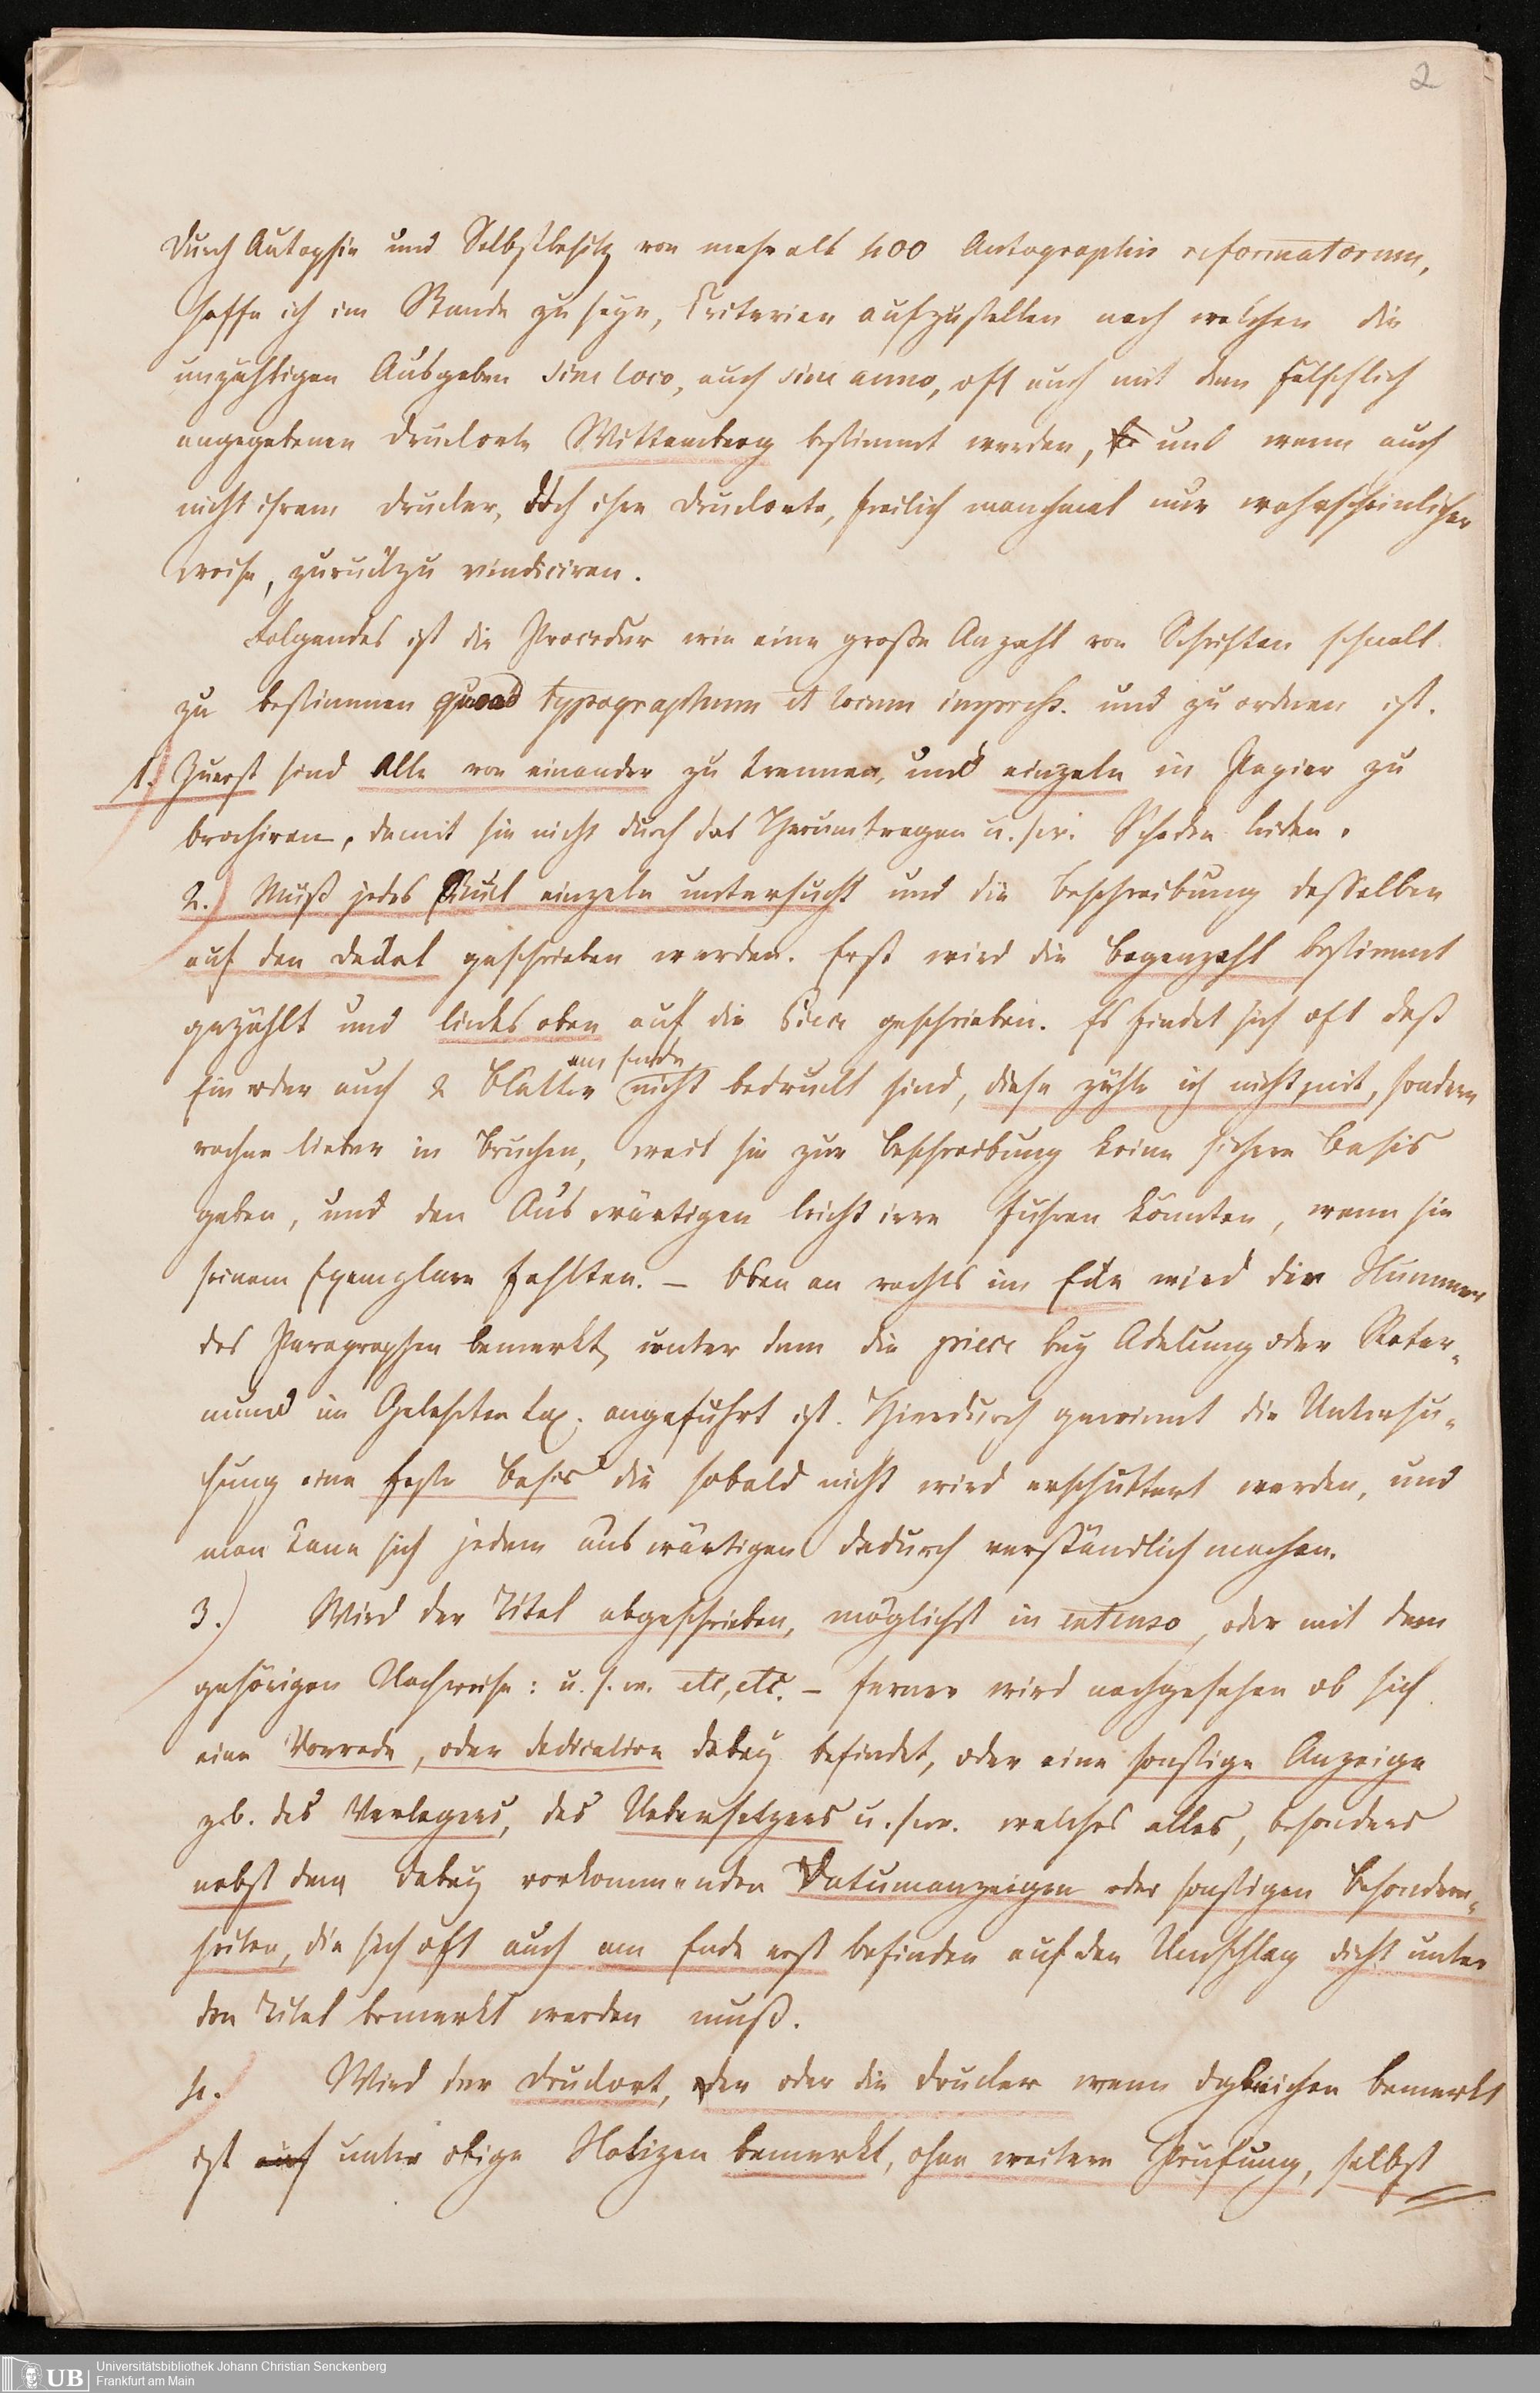 2
Durch Autopsie und Selbstbesitz von mehr als 400 Autographis reformatorum,
hoffe ich im Stande zu seyn, Criterien aufzustellen nach welchen die
unzähligen Ausgaben sine loco, auch sine anno, oft auch mit dem fälschlich
angegebenen Druckorte Wittemberg bestimmt werden, und wenn auch
nicht ihrem Drucker, doch ihrem Druckorte, freilich manchmal nur wahrscheinlicher
weise, zurückzu vindiciren.
Folgendes ist die Procedur wie eine große Anzahl von Schriften schnell
zu bestimmen quoad typographum et locum impress. und zu ordnen ist.
1. Zuerst sind Alle von einander zu trennen, und einzeln in Papier zu
brochiren, damit sie nicht durch das Herumtragen u.s.w. Schaden leiden.
2.) Muß jedes Stück einzeln untersucht und die Beschreibung desselben
auf den Deckel geschrieben werden. Erst wird die Bogenzahl bestimmt
gezählt und links oben auf die Piece geschrieben. Es findet sich oft daß
am Ende
Ein oder auch 2 Blätter nicht bedruckt sind, diese zähle ich nicht mit, sondern
rechne lieber in Bruchen, weil sie zur Beschreibung keine sichere Basis
geben, und den Auswärtigen leicht irre führen könnten, wenn sie
seinem Exemplare fehlten. – Oben an rechts im Eck wird die Nummer
des Paragraphen bemerkt, unter dem die piece bey Adelung oder Roter-
mund im Gelehrten Lex. angeführt ist. Hierdurch gewinnt die Untersu-
chung eine feste Basis die sobald nicht wird erschüttert werden, und
man kann sich jedem auswärtigen dadurch verständlich machen.
3.) Wird der Titel abgeschrieben, möglichst in extenso, oder mit dem
gehörigen Nachweise: u.s.w. etc, etc. – ferner wird nachgesehen ob sich
eine Vorrede, oder dedication dabey befindet, oder eine sonstige Anzeige
z.b. des Verlegers, des Uebersetzers u.s.w. welches alles, besonders
nebst den dabey vorkommenden Datumanzeigen oder sonstigen Besondern-
heiten, die sich oft auch am Ende erst befinden auf den Umschlag dicht unter
den Titel bemerkt werden muß.
4. Wird der Druckort, der oder die Drucker wenn dgleichen bemerkt
ist auf unter obige Notizen bemerkt, ohne weitere Prüfung, selbst
UB Universitätsbibliothek Johann Christian Senckenberg
Frankfurt am Main